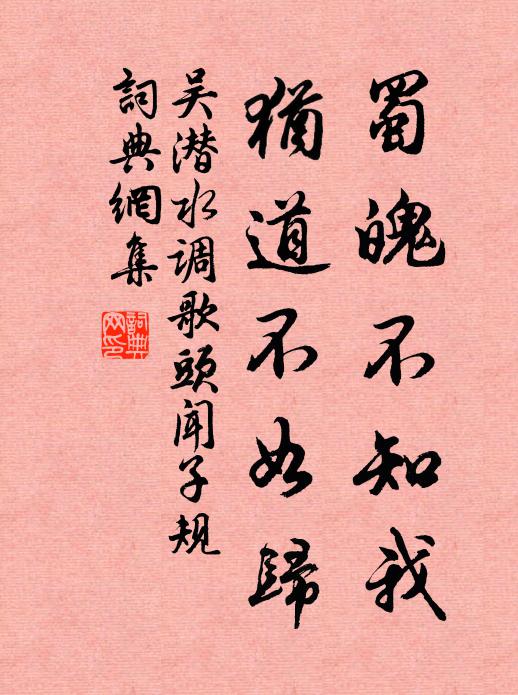 蜀魄不知我
猶道不如歸
吴潜水调歌頭闻子规
詞典網集
詞典
网印